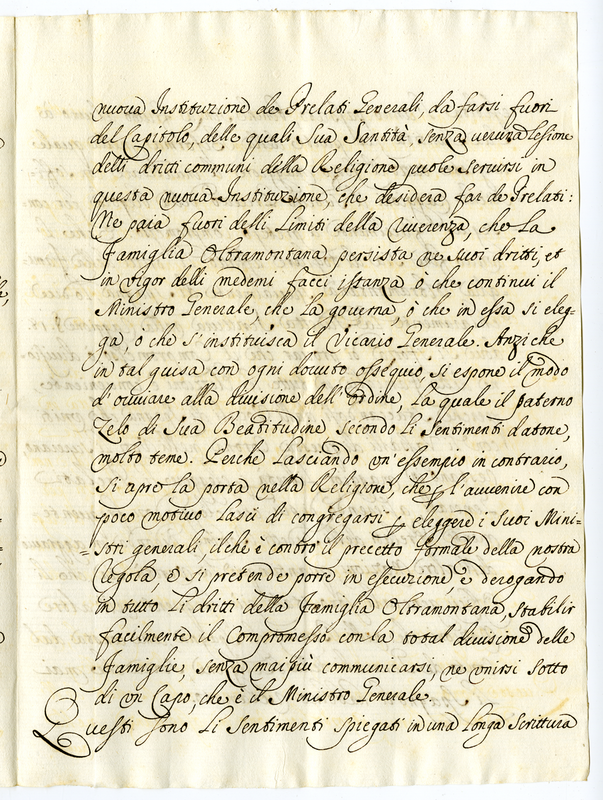 nuova Instituzione de Prelati Generali, da farsi fuori
del Capitolo, delle quali Sua Santità, senza veruna lesione
delli dritti communi della Religione puole servirsi in
questa nuova Instituzione, che desidera far de Prelati:
Ne paia fuori delli Limiti della riverenza, che La
Famiglia Oltramontana persista ne suoi dritti, et
in vigor delli medemi facci istanza ò che continui il
Ministro Generale, che La governa, ò che in essa si eleg=
ga, ò che s'instituisca il Vicario Generale. Anzi che
in tal guisa con ogni dovuto ossequio, si espone il modo
d'ovviare alla divisione dell'Ordine, La quale il paterno
Zelo di Sua Beatitudine secondo Li Sentimenti datone,
molto teme. Perche Lasciando un'essempio in contrario,
si apre La porta nella Religione, che p l'avvenire con
poco motivo Lasci di congregarsi p eleggere i Suoi Mini=
=stri generali, ilche è contro il precetto formale della nostra
Regola è si pretende porre in esecuzione, è derogando
in tutto Li dritti della Famiglia Oltramontana, stabilir
facilmente il Compromesso con la total divisione delle
Famiglie, senza mai più communicarsi, ne unirsi sotto
di un Capo, che è il Ministro Generale.
Questi sono Li Sentimenti spiegati in una Longa Scrittura